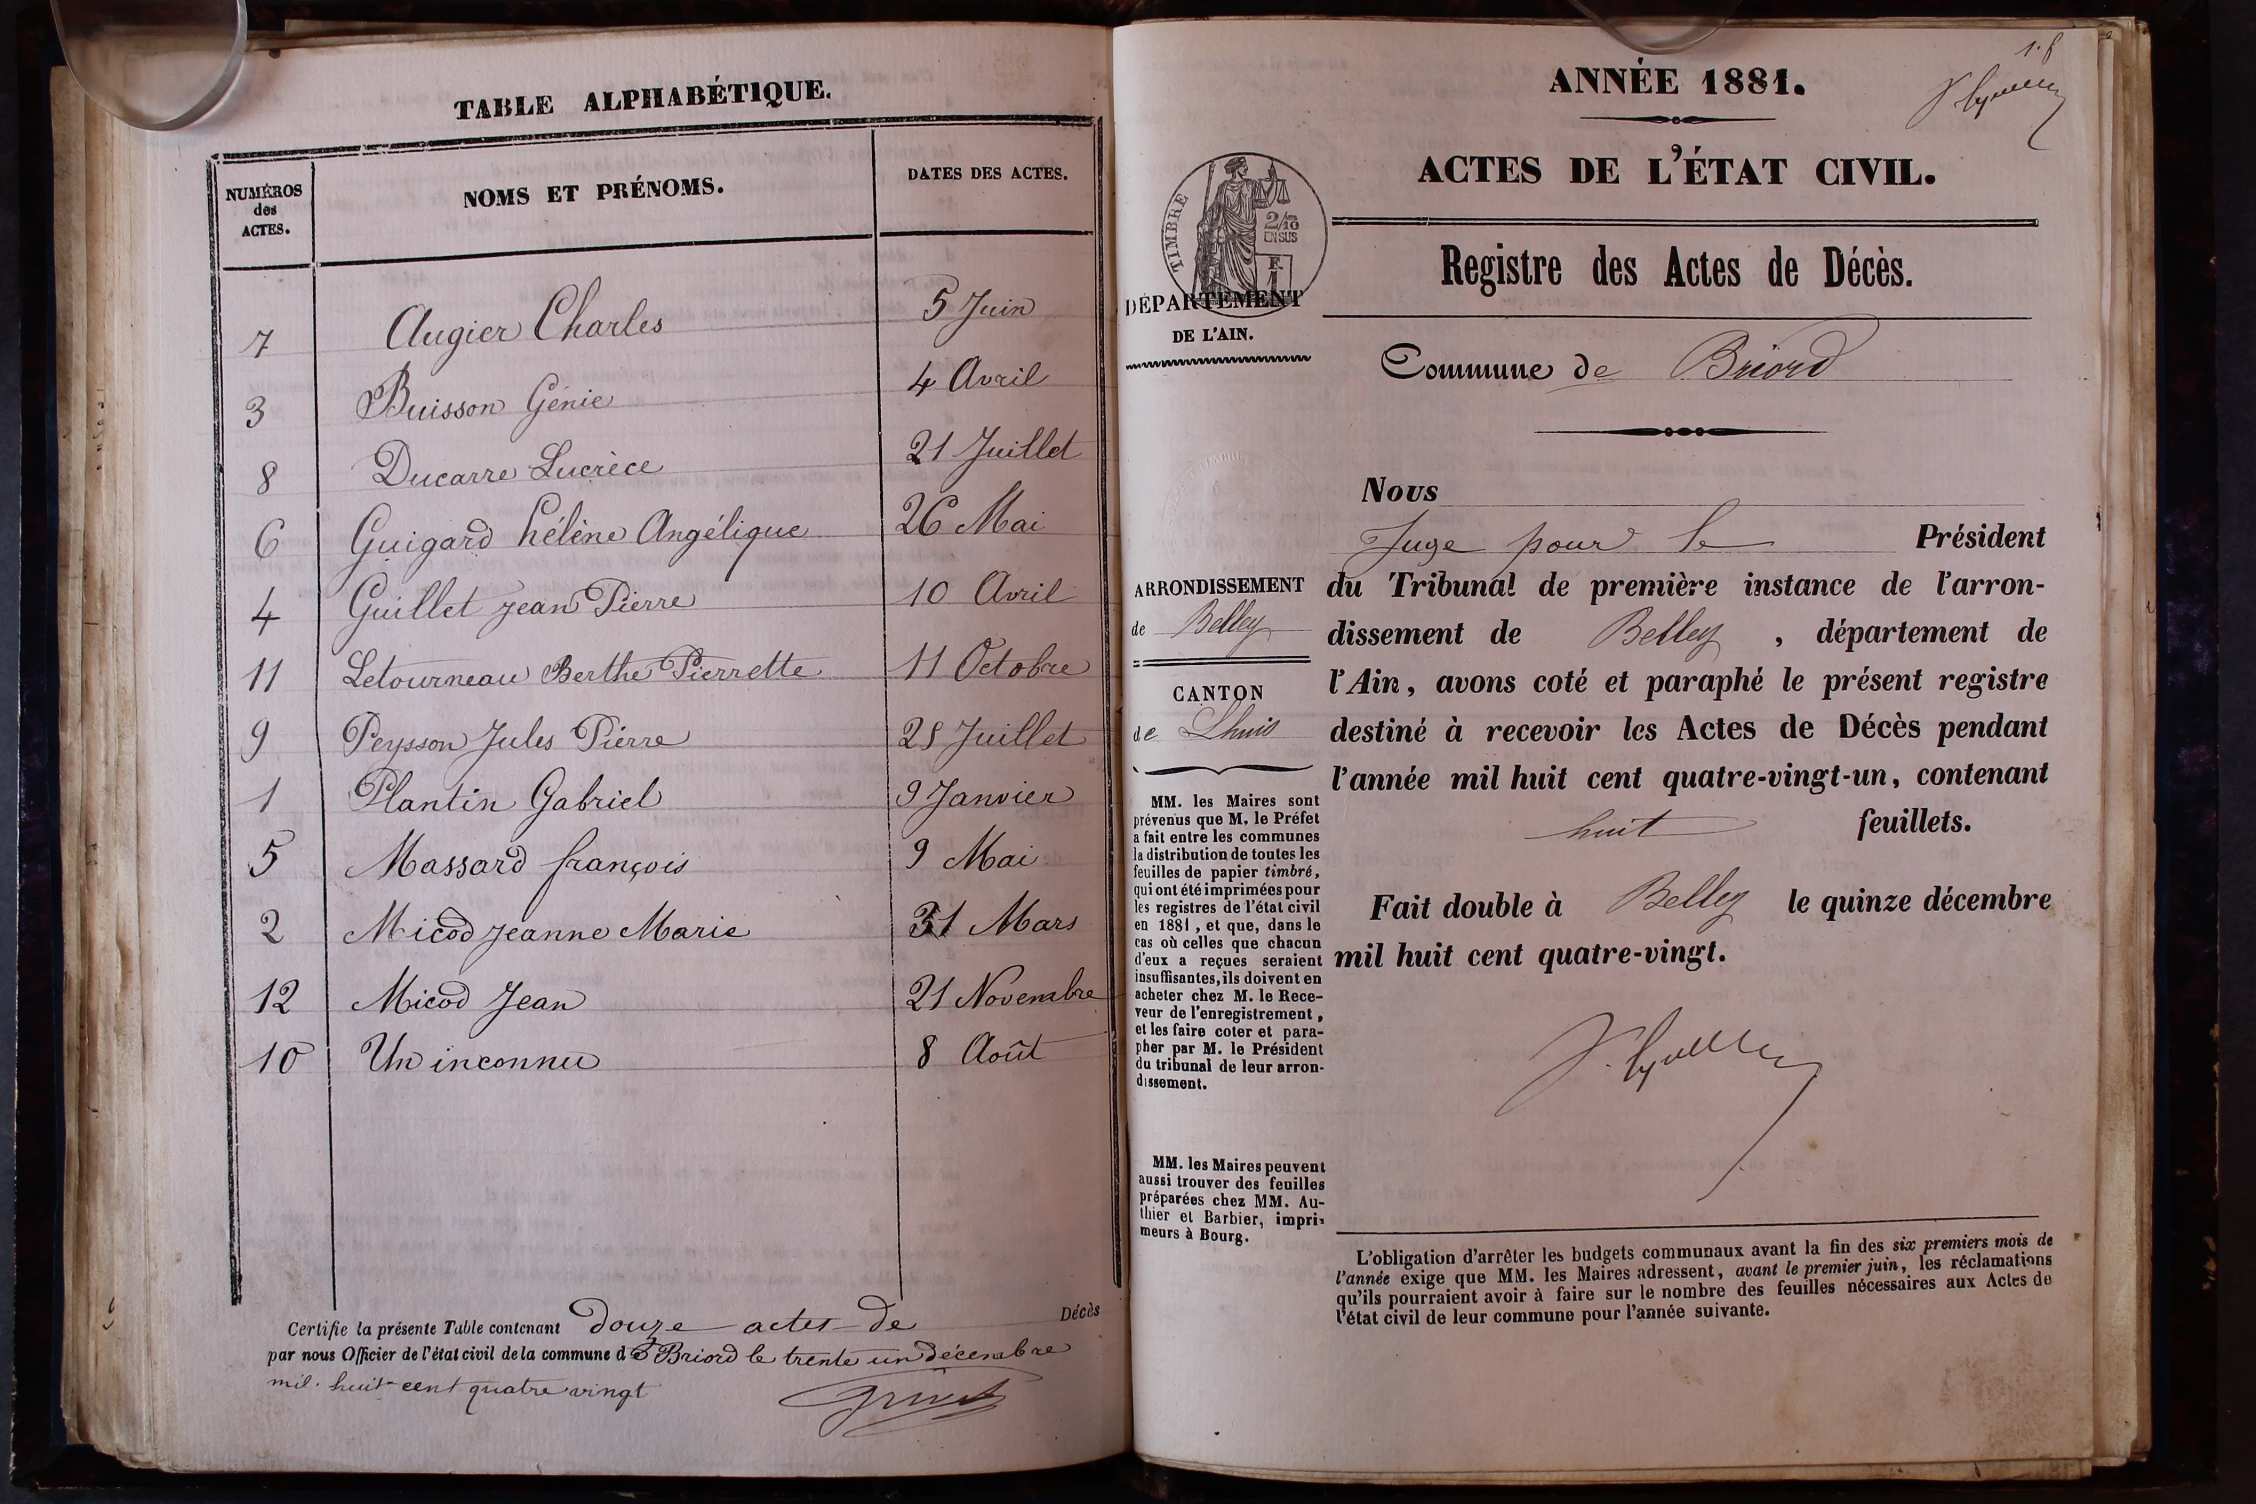 TABLE ALPHABÉTIQUE.
NUMÉROS des ACTES. NOMS ET PRÉNOMS. DATES DES ACTES.
7 Augier Charles 5 Juin
3 Buisson Génie 4 Avril
8 Ducarre Lucrèce 21 Juillet
6 Guigard hélène Angélique 26 Mai
4 Guillet Jean Pierre 10 Avril
11 Letourneau Berthe Pierrette 11 Octobre
9 Peysson Jules Pierre 25 Juillet
1 Plantin Gabriel 9 Janvier
5 Massard françois 9 Mai
2 Micod Jeanne Marie 31 Mars
12 Micod Jean 21 Novembre
10 Un inconnu 8 Août
Certifie la présente Table contenant douze actes de Décès
par nous Officier de l'état civil de la commune de Briord le trente un décembre
mil huit cent quatre vingt
ANNÉE 1881.
ACTES DE L'ÉTAT CIVIL.
TIMBRE
2/10
EN SUS
F.
1
DÉPARTEMENT
DE L'AIN.
ARRONDISSEMENT
de Belley
CANTON
de Lhuis
MM. les Maires sont
prévenus que M. le Préfet
a fait entre les communes
la distribution de toutes les
feuilles de papier timbré,
qui ont été imprimées pour
les registres de l'état civil
en 1881, et que, dans le
cas où celles que chacun
d'eux a reçues seraient
insuffisantes, ils doivent en
acheter chez M. le Rece-
veur de l'enregistrement,
et les faire coter et para-
pher par M. le Président
du tribunal de leur arron-
dissement.
MM. les Maires peuvent
aussi trouver des feuilles
préparées chez MM. Au-
thier et Barbier, impri-
meurs à Bourg.
Registre des Actes de Décès.
Commune de Briord
Nous
Juge pour le Président
du Tribunal de première instance de l'arron-
dissement de Belley, département de
l'Ain, avons coté et paraphé le présent registre
destiné à recevoir les Actes de Décès pendant
l'année mil huit cent quatre-vingt-un, contenant
huit feuillets.
Fait double à Belley le quinze décembre
mil huit cent quatre-vingt.
L'obligation d'arrêter les budgets communaux avant la fin des six premiers mois de
l'année exige que MM. les Maires adressent, avant le premier juin, les réclamations
qu'ils pourraient avoir à faire sur le nombre des feuilles nécessaires aux Actes de
l'état civil de leur commune pour l'année suivante.